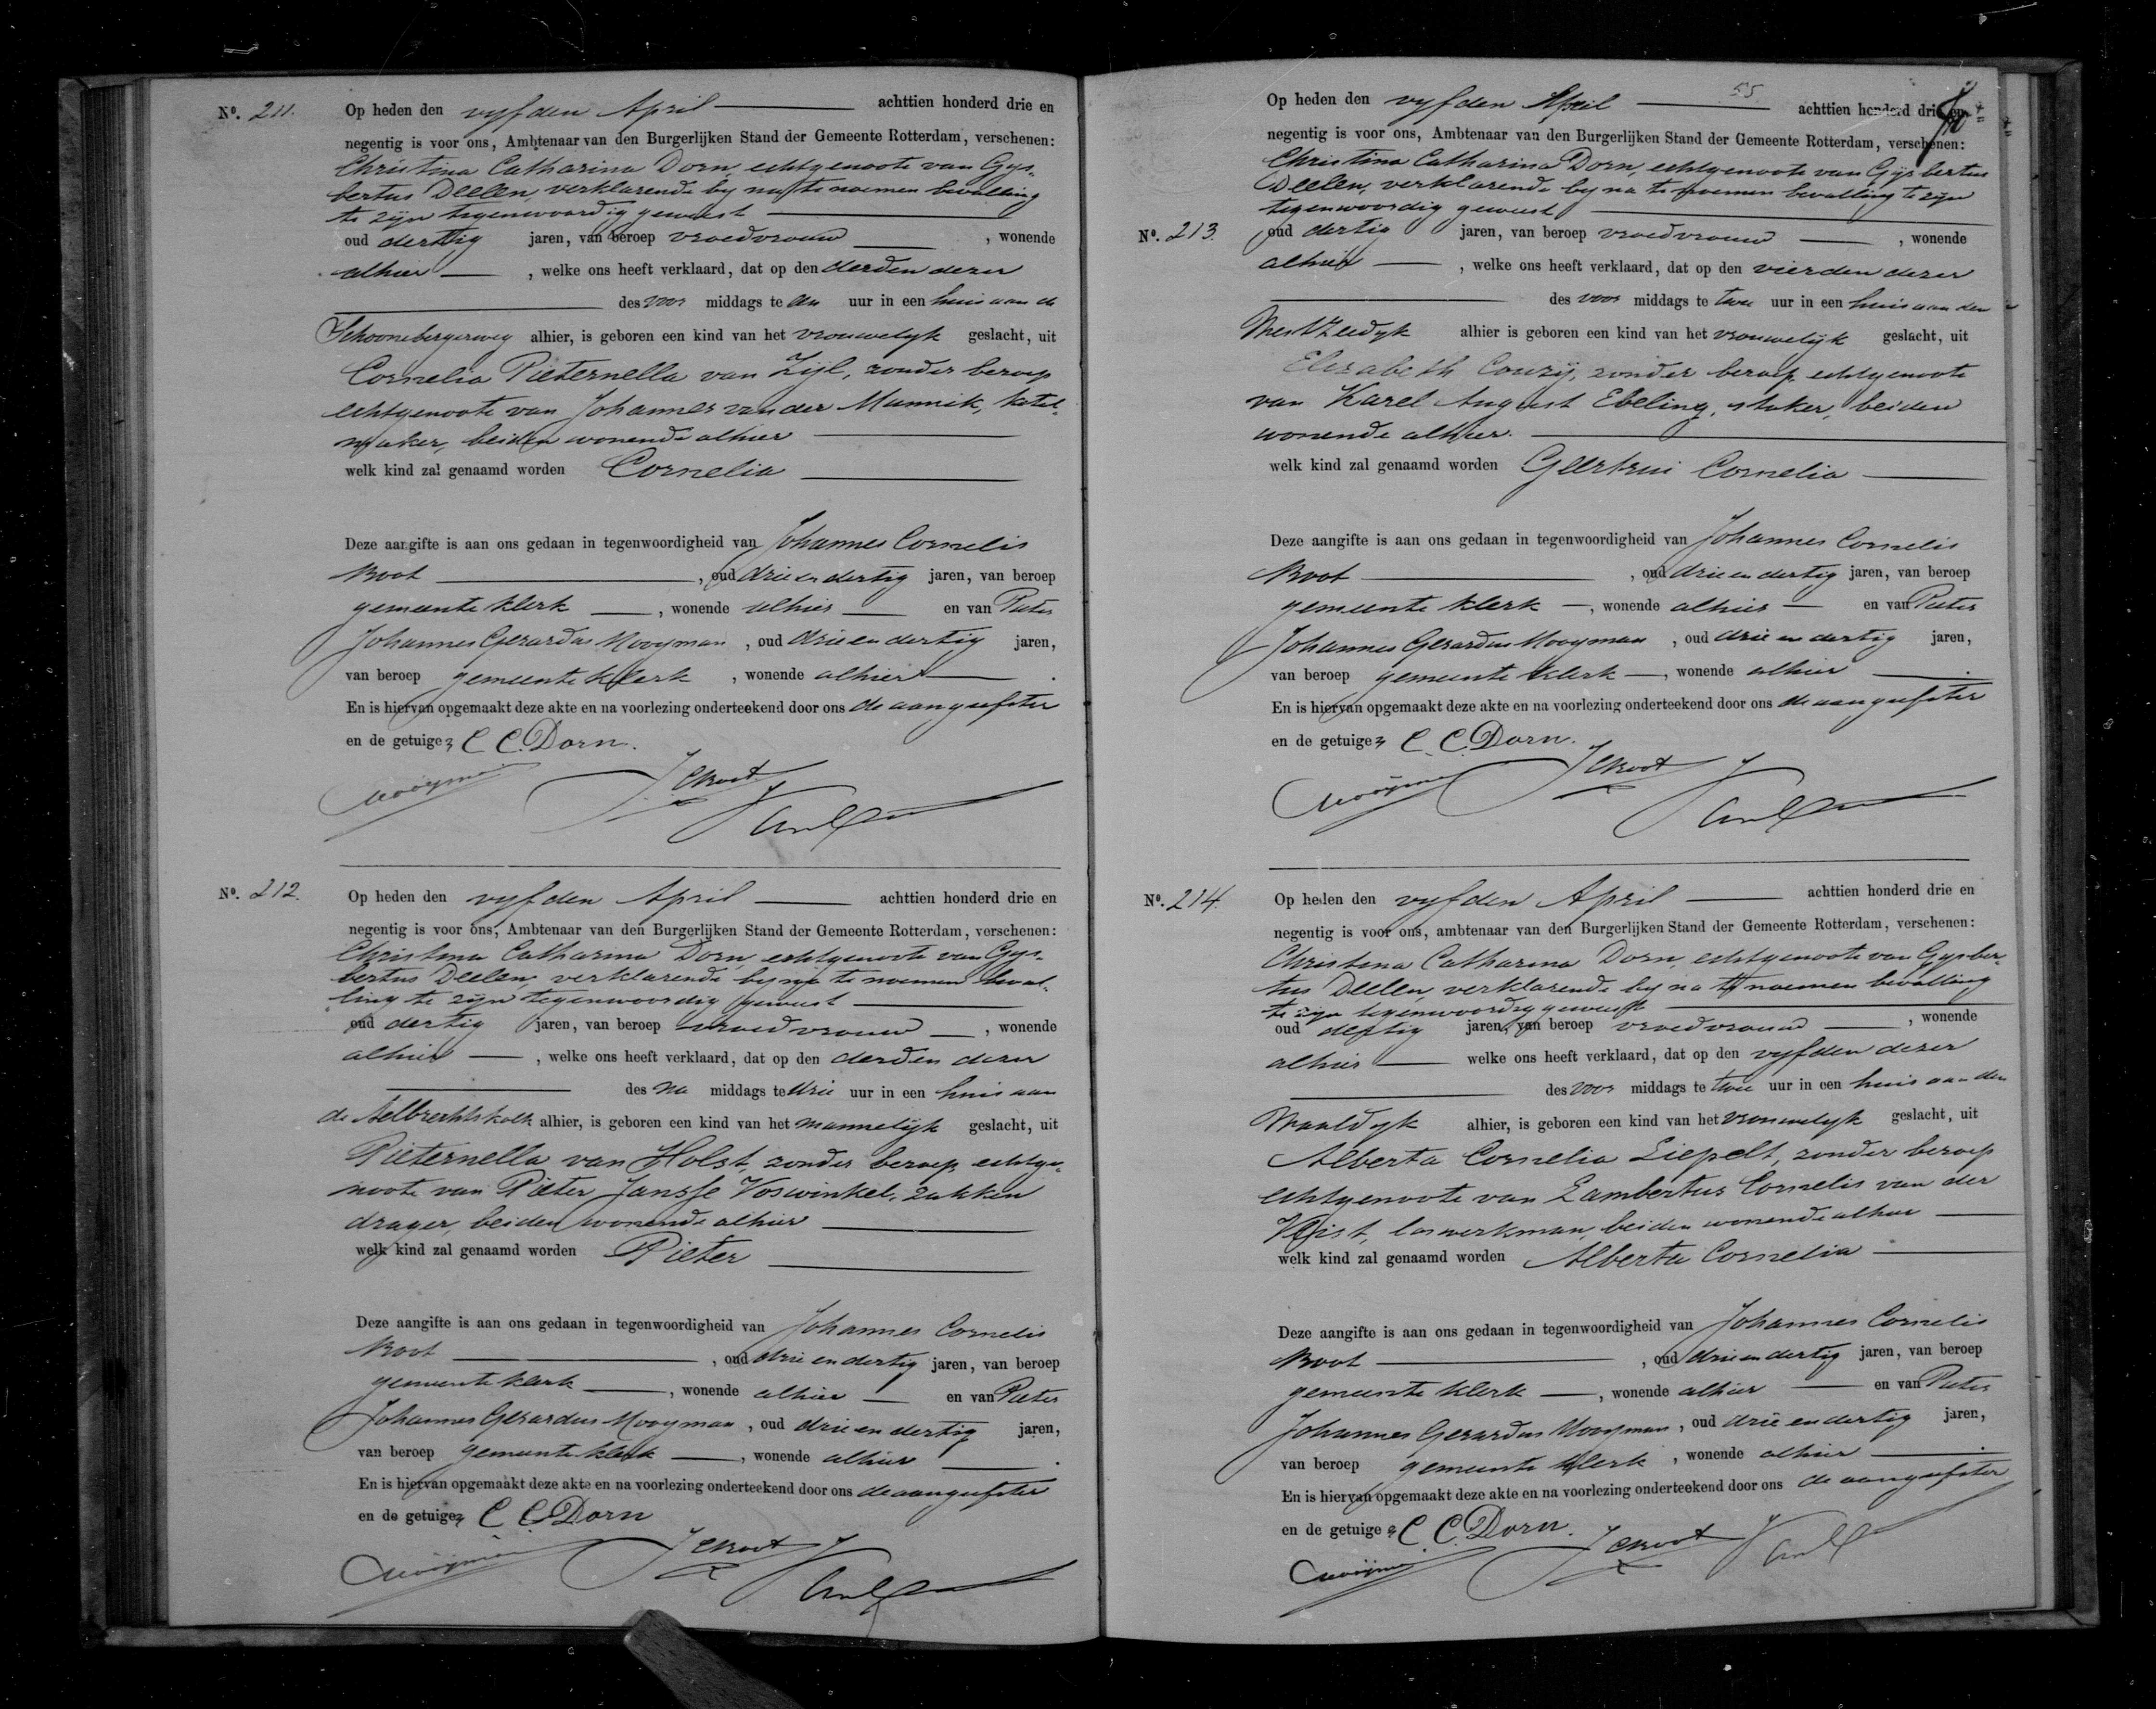 Nº. 211. Op heden den vyfden April achttien honderd drie en
negentig is voor ons, Ambtenaar van den Burgerlijken Stand der Gemeente Rotterdam, verschenen:
Christina Catharina Dorn, echtgenoote van Gys-
bertus Deelen, verklarende by na te noemen bevalling
te zijn tegenwoordig geweest
oud dertig jaren, van beroep vroedvrouw, wonende
alhier, welke ons heeft verklaard, dat op den derden dezer
des voor middags te uur in een huis aan de
Schoonebergerweg alhier, is geboren een kind van het vrouwelyk geslacht, uit
Cornelia Pieternella van Zijl, zonder beroep
echtgenoote van Johannes van der Munnik, ketel-
maker, beiden wonende alhier
welk kind zal genaamd worden Cornelia
Deze aangifte is aan ons gedaan in tegenwoordigheid van Johannes Cornelis
Root, oud drie en dertig jaren, van beroep
gemeente klerk, wonende alhier en van Pieter
Johannes Gerardus Mooyman, oud drie en dertig jaren,
van beroep gemeente klerk, wonende alhier.
En is hiervan opgemaakt deze akte en na voorlezing onderteekend door ons de aangeefster
en de getuigen C C. Dorn.
Mooijman JCRoot
Nº. 212. Op heden den vyfden April achttien honderd drie en
negentig is voor ons, Ambtenaar van den Burgerlijken Stand der Gemeente Rotterdam, verschenen:
Christina Catharina Dorn, echtgenoote van Gys-
bertus Deelen, verklarende by na te noemen beval-
ling te zijn tegenwoordig geweest
oud dertig jaren, van beroep vroedvrouw, wonende
alhier, welke ons heeft verklaard, dat op den derden dezer
des na middags te drie uur in een huis aan
de Aelbrechtskolk alhier, is geboren een kind van het mannelijk geslacht, uit
Pieternella van Holst, zonder beroep echtge-
noote van Pieter Jansse Voswinkel, zakken
drager, beiden wonende alhier
welk kind zal genaamd worden Pieter
Deze aangifte is aan ons gedaan in tegenwoordigheid van Johannes Cornelis
Root, oud drie en dertig jaren, van beroep
gemeente klerk, wonende alhier en van Pieter
Johannes Gerardus Mooyman, oud drie en dertig jaren,
van beroep gemeente klerk, wonende alhier.
En is hiervan opgemaakt deze akte en na voorlezing onderteekend door ons de aangeefster
en de getuigen C C Dorn
Mooijman JCRoot
55
Op heden den vyfden April achttien honderd drie en
negentig is voor ons, Ambtenaar van den Burgerlijken Stand der Gemeente Rotterdam, verschenen:
Christina Catharina Dorn, echtgenoote van Gijsbertus
Deelen, verklarende by na te noemen bevalling te zijn
tegenwoordig geweest
Nº. 213. oud dertig jaren, van beroep vroedvrouw, wonende
alhier, welke ons heeft verklaard, dat op den vierden dezer
des voor middags te twee uur in een huis aan den
Westzeedyk alhier is geboren een kind van het vrouwelijk geslacht, uit
Elizabeth Couzij, zonder beroep, echtgenoote
van Karel August Ebeling, stoker, beiden
wonende alhier.
welk kind zal genaamd worden Geertrui Cornelia
Deze aangifte is aan ons gedaan in tegenwoordigheid van Johannes Cornelis
Root, oud drie en dertig jaren, van beroep
gemeente klerk, wonende alhier en van Pieter
Johannes Gerardus Mooyman, oud drie en dertig jaren,
van beroep gemeente klerk, wonende alhier.
En is hiervan opgemaakt deze akte en na voorlezing onderteekend door ons de aangeefster
en de getuigen C. C. Dorn.
Mooijman JCRoot
Nº. 214. Op heden den vyfden April achttien honderd drie en
negentig is voor ons, ambtenaar van den Burgerlijken Stand der Gemeente Rotterdam, verschenen:
Christina Catharina Dorn, echtgenoote van Gysber-
tus Deelen, verklarende by na te noemen bevalling
te zijn tegenwoordig geweest
oud dertig jaren, van beroep vroedvrouw, wonende
alhier welke ons heeft verklaard, dat op den vyfden dezer
des voor middags te twee uur in een huis aan den
Waaldyk alhier, is geboren een kind van het vrouwelyk geslacht, uit
Alberta Cornelia Liepelt, zonder beroep
echtgenoote van Lambertus Cornelis van der
Vlist, los werkman, beiden wonende alhier
welk kind zal genaamd worden Alberta Cornelia
Deze aangifte is aan ons gedaan in tegenwoordigheid van Johannes Cornelis
Root, oud drie en dertig jaren, van beroep
gemeente klerk, wonende alhier en van Pieter
Johannes Gerardus Mooyman, oud drie en dertig jaren,
van beroep gemeente klerk, wonende alhier.
En is hiervan opgemaakt deze akte en na voorlezing onderteekend door ons de aangeefster
en de getuigen C. C. Dorn.
Mooijman JCRoot